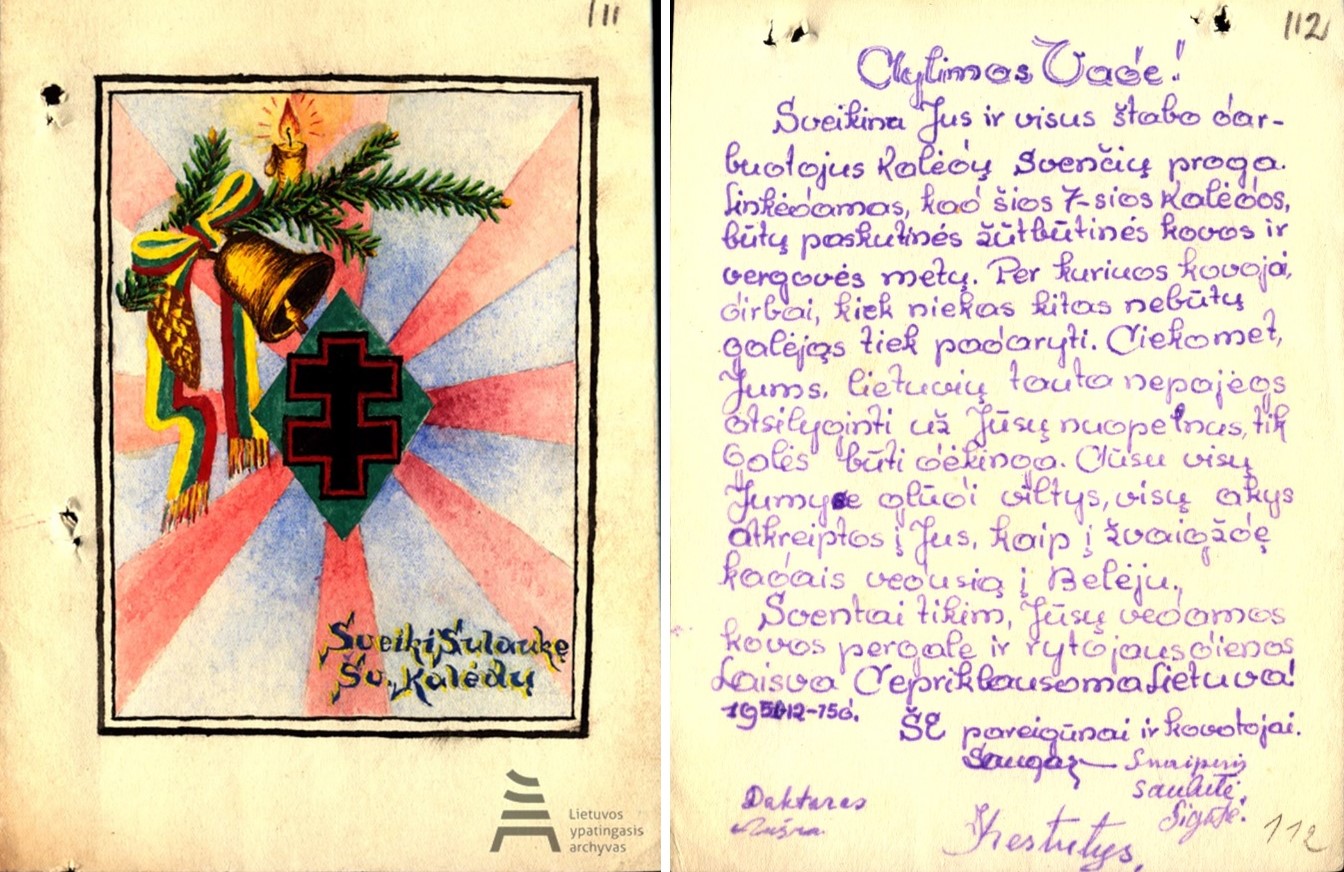 111
Sveiki Sulaukę
Šv. Kalėdų
Lietuvos
ypatingasis
archyvas
112
Mylimas Vade!
Sveikina Jus ir visus štabo dar-
buotojus Kalėdų Švenčių proga.
Linkėdamas, kad šios 7-sios Kalėdos,
būtų paskutinės žūtbūtinės kovos ir
vergovės metų. Per kuriuos kovojai,
dirbai, kiek niekas kitas nebūtų
galėjęs tiek padaryti. Niekomet,
Jums, lietuvių tauta nepajėgs
atsilyginti už Jūsų nuopelnus, tik
galės būti dėkinga. Mūsu visų
Jumyse glūdi viltys, visų akys
atkreiptos į Jus, kaip į žvaigždę
kadais vedusią į Belėju.
Šventai tikim, Jūsų vedamos
kovos pergale ir rytojausdienos
Laisva Nepriklausoma Lietuva!
12-15d.
ŠE pareigūnai ir kovotojai.
Snaiperis
Daktaras
saulutė,
Sigutė.
Kestutys,
112